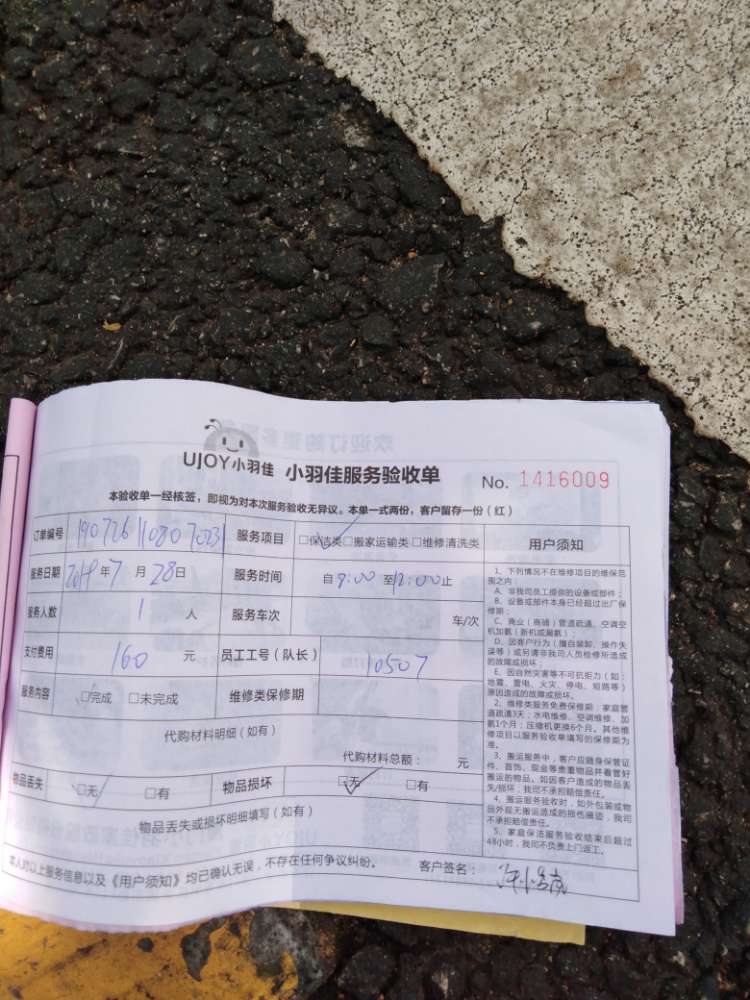 UJOY小羽佳 小羽佳服务验收单 No. 1416009
本验收单一经核签，即视为对本次服务验收无异议。本单一式两份，客户留存一份（红）
订单编号 服务项目 □保洁类□搬家运输类□维修清洗类 用户须知
服务日期 2019年7月28日 服务时间 自9:00至12:00止
服务人数 1 人 服务车次 车/次
支付费用 160 元 员工工号（队长） 10507
服务内容 □完成 □未完成 维修类保修期
代购材料明细（如有）
代购材料总额： 元
物品丢失 □无 □有 物品损坏 □无 □有
物品丢失或损坏明细填写（如有）
本人对以上服务信息以及《用户须知》均已确认无误，不存在任何争议纠纷。 客户签名：
1、下列情况不在维修项目的维保范
围之内：
A、非我司员工提供的设备或部件；
B、设备或部件本身已经超过出厂保
修期；
C、商业（商铺）管道疏通、空调空
机加氨（新机或漏氨）；
D、因客户行为（擅自装卸、操作失
误等）或另请非我司人员检修所造成
的故障或损坏；
E、因自然灾害等不可抗拒力（如：
地震、雷电、火灾、停电、短路等）
原因造成的故障或损坏。
2、维修类服务免费保修期：家庭管
道疏通3天；水电维修、空调维修、加
氨1个月；压缩机更换6个月。其他维
修项目以服务验收单填写的保修期为
准。
3、搬运服务中，客户应随身保管证
件、首饰、现金等贵重物品并看管好
搬运的物品。如因客户造成的物品丢
失/损坏，我司不承担赔偿责任。
4、搬运服务验收时，如外包装或物
品外观无搬运造成的损伤痕迹，我司
不承担赔偿责任。
5、家庭保洁服务验收结束后超过
48小时，我司不负责上门返工。